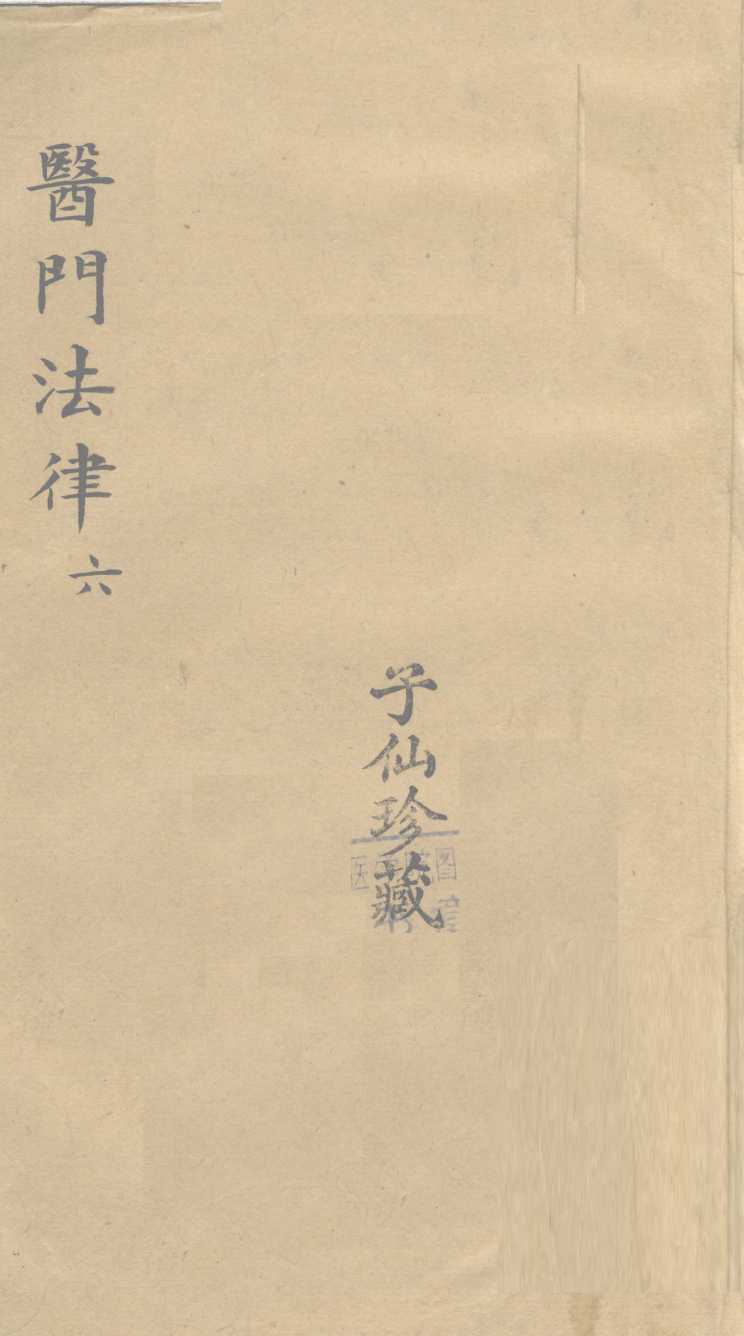 醫門法律 六
子仙珍藏